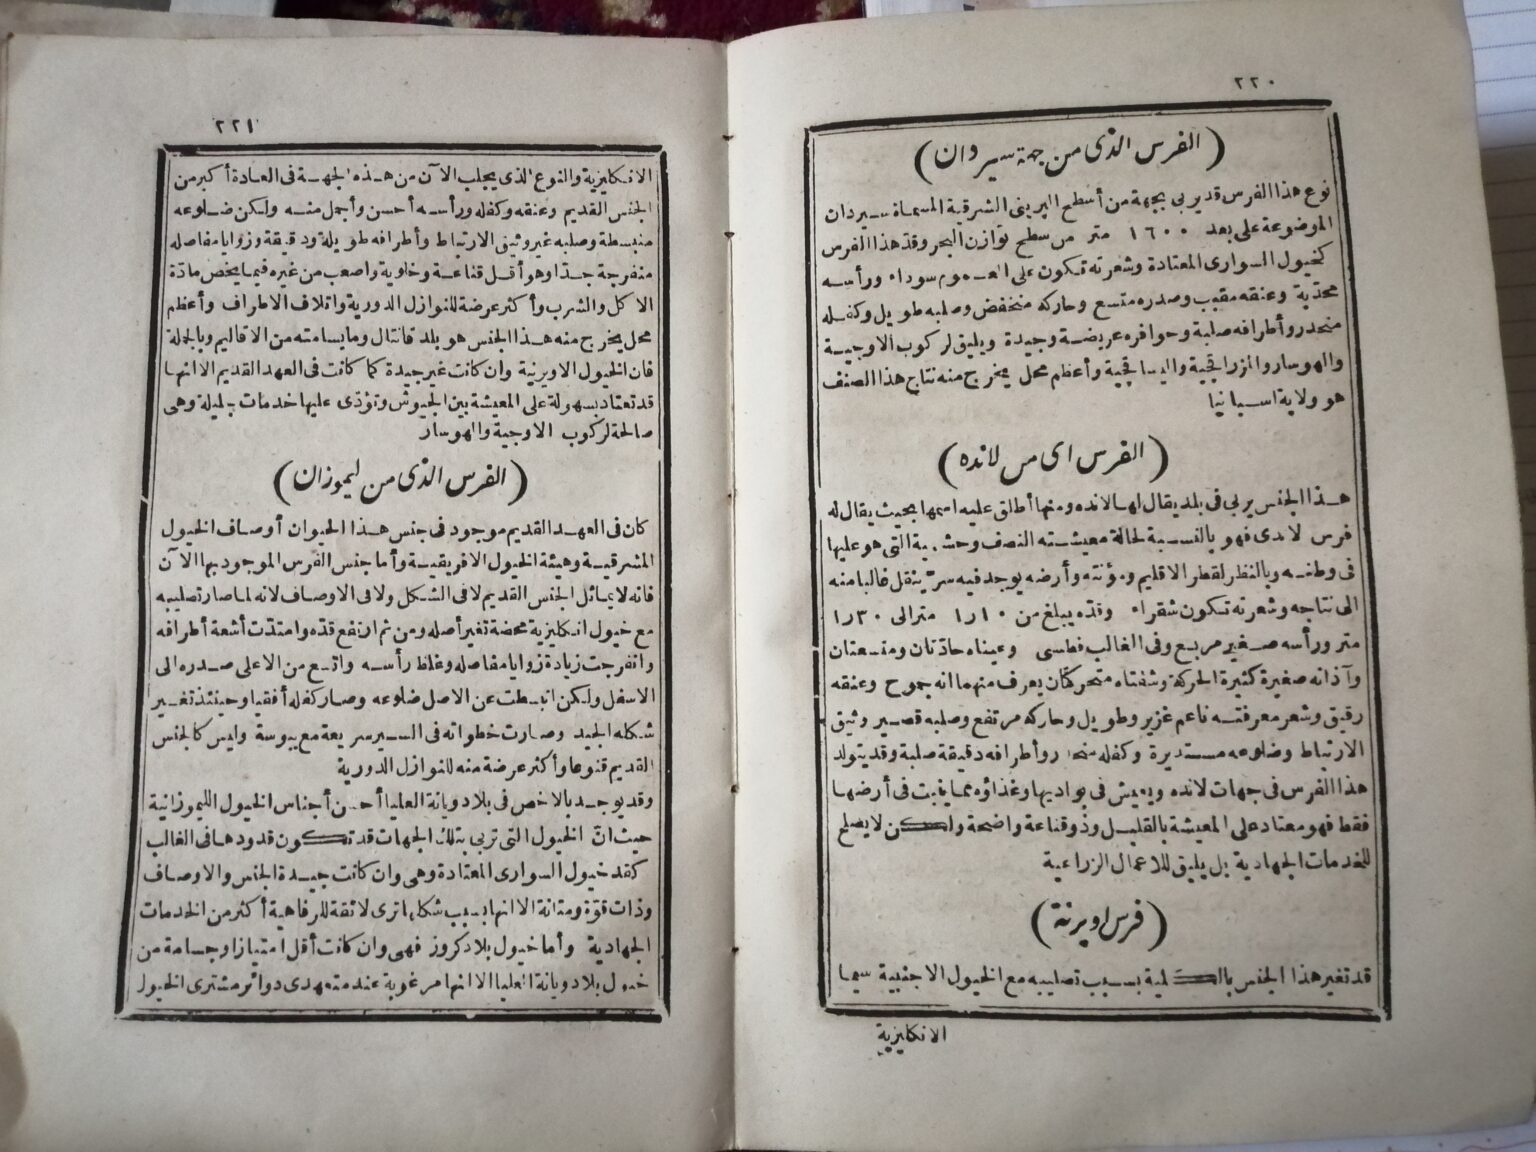 ٢٢٠
(الفرس الذى من جهة سيردان)
نوع هذا الفرس قد يربى بجهة من أسطح البرينى الشرقية المسماة سيردات
الموضوعة على بعد ١٦٠٠ متر من سطح توازن البحر وقد هذا الفرس
كخيول السوارى المعتادة وشعرته تكون على العموم سوداء ورأسه
محدبة وعنقه مقبب وصدره متسع وحاركه منخفض وصلبه طويل وكفله
منحدر وأطرافه صلبة وحوافره عريضة وجيدة ويليق لركوب الاوجية
والهوسار والمزراقجية واليساقجية وأعظم محل يخرج منه نتاج هذا الصنف
هو ولاية اسبانيا
(الفرس اى من لانده)
هذا الجنس يربى فى بلد يقال لها لانده ومنها أطلق عليه اسمها بحيث يقال له
فرس لاندى فهو بالنسبة لحالة معيشته النصف وحشية التى هو عليها
فى وطنه وبالنظر لقطر الاقليم ومؤنته وأرضه يوجد فيه سر ينقل غالبا منه
الى نتاجه وشعرته تكون شقراء وقده يبلغ من ١ر١٠ متر الى ١ر٣٠
متر ورأسه صغير مربع وفى الغالب فطسى وعيناه حادتان ومتسعتان
وآذانه صغيرة كثيرة الحركة وشفتاه متحركتان يعرف منهما انه جموح وعنقه
رقيق وشعر معرفته ناعم غزير وطويل وحاركه مرتفع وصلبه قصير وثيق
الارتباط وضلوعه مستديرة وكفله منحدر وأطرافه دقيقة صلبة وقد يتولد
هذا الفرس فى جهات لانده ويعيش فى بواديها وغذاؤه مما ينبت فى أرضها
فقط فهو معتاد على المعيشة بالقليل وذو قناعة واضحة ولكن لا يصلح
للخدمات الجهادية بل يليق للاعمال الزراعية
(فرس اويرنة)
قد تغير هذا الجنس بالكلية بسبب تصليبه مع الخيول الاجنبية سيما
الانكليزية
٢٢١
الانكليزية والنوع الذى يجلب الآن من هذه الجهة فى العادة أكبر من
الجنس القديم وعنقه وكفله ورأسه أحسن وأجمل منه ولكن ضلوعه
منبسطة وصلبه غير وثيق الارتباط وأطرافه طويلة ودقيقة وزوايا مفاصله
منفرجة جدا وهو أقل قناعة وخاوية واصعب من غيره فيما يخص مادة
الاكل والشرب وأكثر عرضة للنوازل الدورية واتلاف الاطراف وأعظم
محل يخرج منه هذا الجنس هو بلد قانتال وما يسامته من الاقاليم وبالجملة
فان الخيول الاويرنية وان كانت غير جيدة كما كانت فى العهد القديم الا انها
قد تعتاد بسهولة على المعيشة بين الجيوش وتؤدى عليها خدمات جليلة وهى
صالحة لركوب الاوجية والهوسار
(الفرس الذى من ليموزان)
كان فى العهد القديم موجود فى جنس هذا الحيوان أوصاف الخيول
المشرقية وهيئة الخيول الافريقية وأما جنس الفرس الموجود بها الآن
فانه لا يماثل الجنس القديم لا فى الشكل ولا فى الاوصاف لانه لما صار تصليبه
مع خيول انكليزية محضة تغير أصله ومن ثم ارتفع قده وامتدت أشعة أطرافه
وانفرجت زيادة زوايا مفاصله وغلظ رأسه واتسع من الاعلى صدره الى
الاسفل ولكن انبسطت عن الاصل ضلوعه وصار كفله أفقيا وحينئذ تغير
شكله الجيد وصارت خطواته فى السير سريعة مع يبوسة وليس كالجنس
القديم قنوعا وأكثر عرضة منه للنوازل الدورية
وقد يوجد بالاخص فى بلاد ويانة العليا أحسن أجناس الخيول الليموزانية
حيث ان الخيول التى تربى بتلك الجهات قد تكون قدودها فى الغالب
كقد خيول السوارى المعتادة وهى وان كانت جيدة الجنس والاوصاف
وذات قوة ومتانة الا انها بسبب شكلها ترى لائقة للرفاهية أكثر من الخدمات
الجهادية وأما خيول بلاد كروز فهى وان كانت أقل امتيازا وجسامة من
خيول بلاد ويانة العليا الا انها مرغوبة عند متعهدى دوائر مشترى الخيول